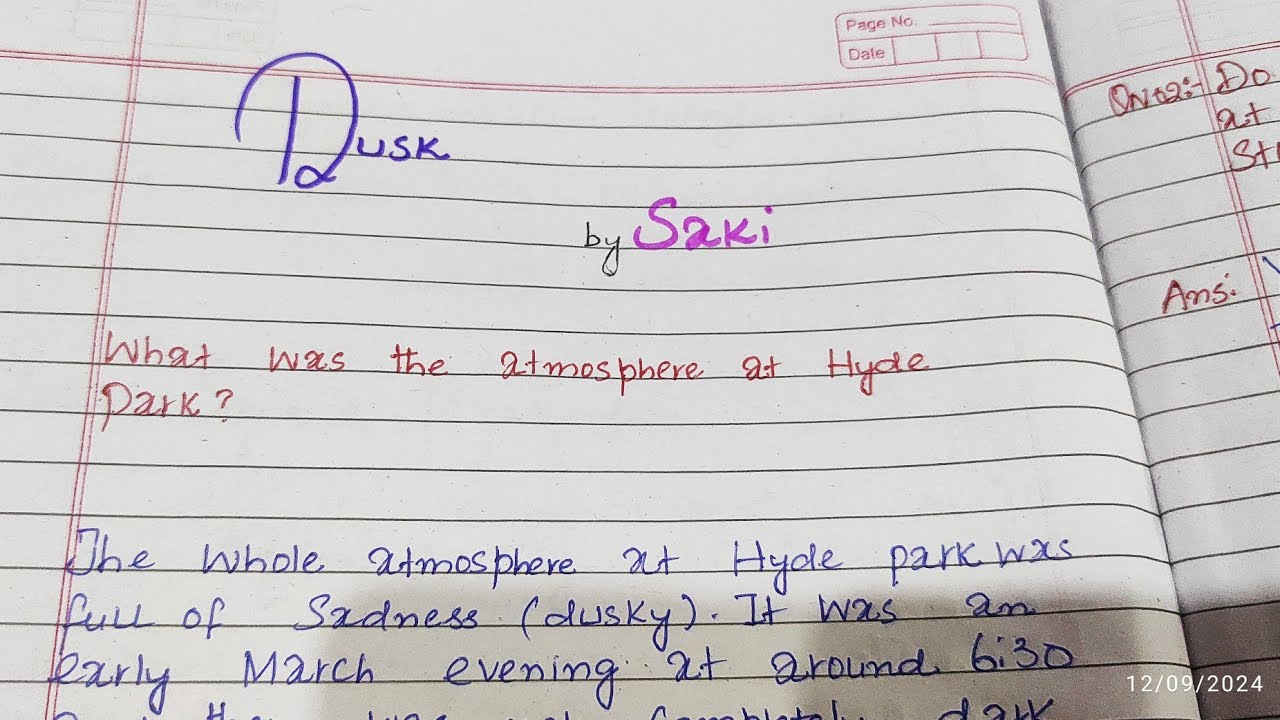 Page No.
Date
Dusk
by Saki
What was the atmosphere at Hyde
Park?
The whole atmosphere at Hyde park was
full of Sadness (dusky). It was an
early March evening at around 6:30
completely dark
Do
at
Ans:
12/09/2024